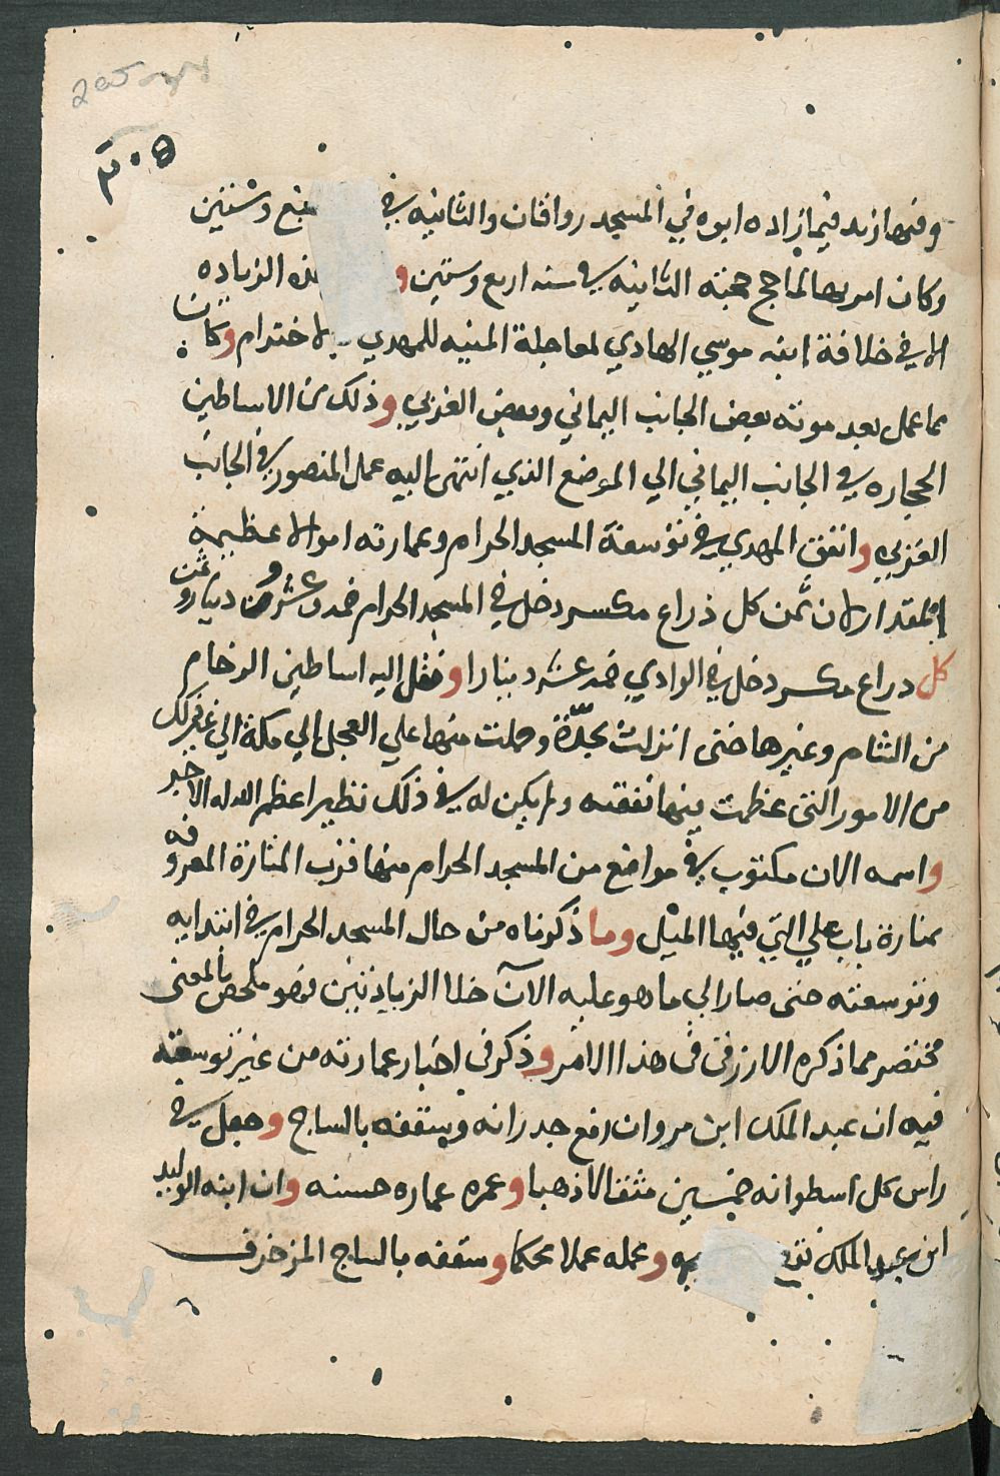 ٣٠٥
وفيها زيد فيما زاده ابوه في المسجد رواقان والثانيه في سبع وستين
وكان امر بها لما حج حجته الثانيه في سنه اربع وستين و هذه الزياده
الا في خلافة ابنه موسي الهادي لمعاجلة المنيه للمهدي بالاخترام وكان
مما عمل بعد موته بعض الجانب اليماني وبعض الغربي وذلك من الاساطين
الحجاره في الجانب اليماني الي الموضع الذي انتهى اليه عمل المنصور في الجانب
الغربي وانفق المهدي في توسعة المسجد الحرام وعمارته اموالا عظيمة
المقدار لان ثمن كل ذراع مكسر دخل في المسجد الحرام خمسه وعشرون دينارا وثمن
كل دراع مكسر دخل في الوادي خمسه عشر دينارا ونقل اليه اساطين الرخام
من الشام وغيرها حتى انزلت بجدّة وحملت منها علي العجل الي مكة الي غير ذلك
من الامور التى عظمت فيها نفقته ولم يكن له في ذلك نظير اعظم الله له الاجر
واسمه الان مكتوب في مواضع من المسجد الحرام منها قرب المنارة المعروفه
بمنارة باب علي التي فيها الميل وما ذكرناه من حال المسجد الحرام في ابتدايه
وتوسعته حتى صار الي ما هو عليه الآن خلا الزيادتين فهو ملخص بالمعنى
مختصر مما ذكره الازرقى فى هذا الامر وذكر فى اخبار عمارته من غير توسعته
فيه ان عبد الملك ابن مروان رفع جدرانه وسقفه بالساج وجعل في
راس كل اسطوانه خمسين مثقالا ذهبا وعمره عماره حسنه وان ابنه الوليد
ابن عبد الملك وعمله عملا محكما وسقفه بالساج المزخرف